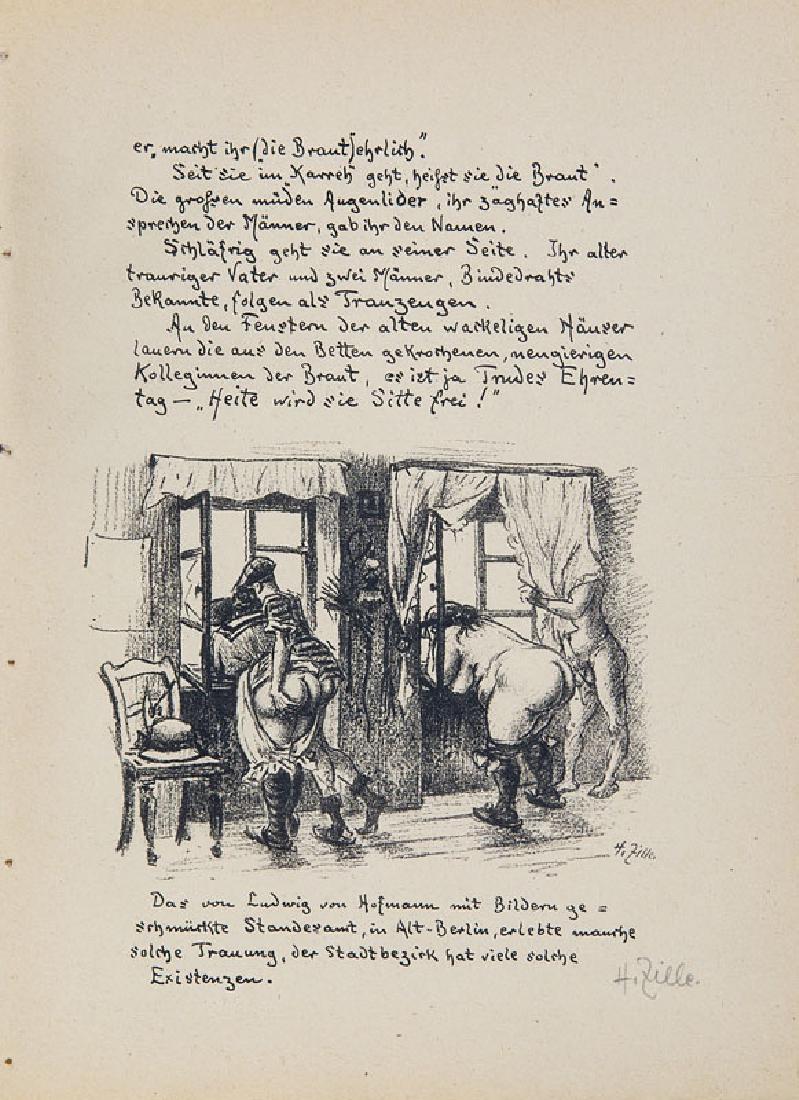 er, macht ihr (die Braut) ehrlich."
Seit sie im „Karreh" geht, heißt sie die Braut'.
Die grossen müden Augenlider, ihr zaghaftes An=
sprechen der Männer, gab ihr den Namen.
Schläfrig geht sie an seiner Seite. Ihr alter
trauriger Vater und zwei Männer, Bindedrahts
Bekannte, folgen als Trauzeugen.
An den Fenstern der alten wackeligen Häuser
lauern die aus den Betten gekrochenen, neugierigen
Kolleginnen der Braut, es ist ja Trudes Ehren=
tag — „Heite wird sie Sitte frei!"
H. Zille.
Das von Ludwig von Hofmann mit Bildern ge=
schmückte Standesamt, in Alt-Berlin, erlebte manche
solche Trauung, der Stadtbezirk hat viele solche
Existenzen.
H. Zille.